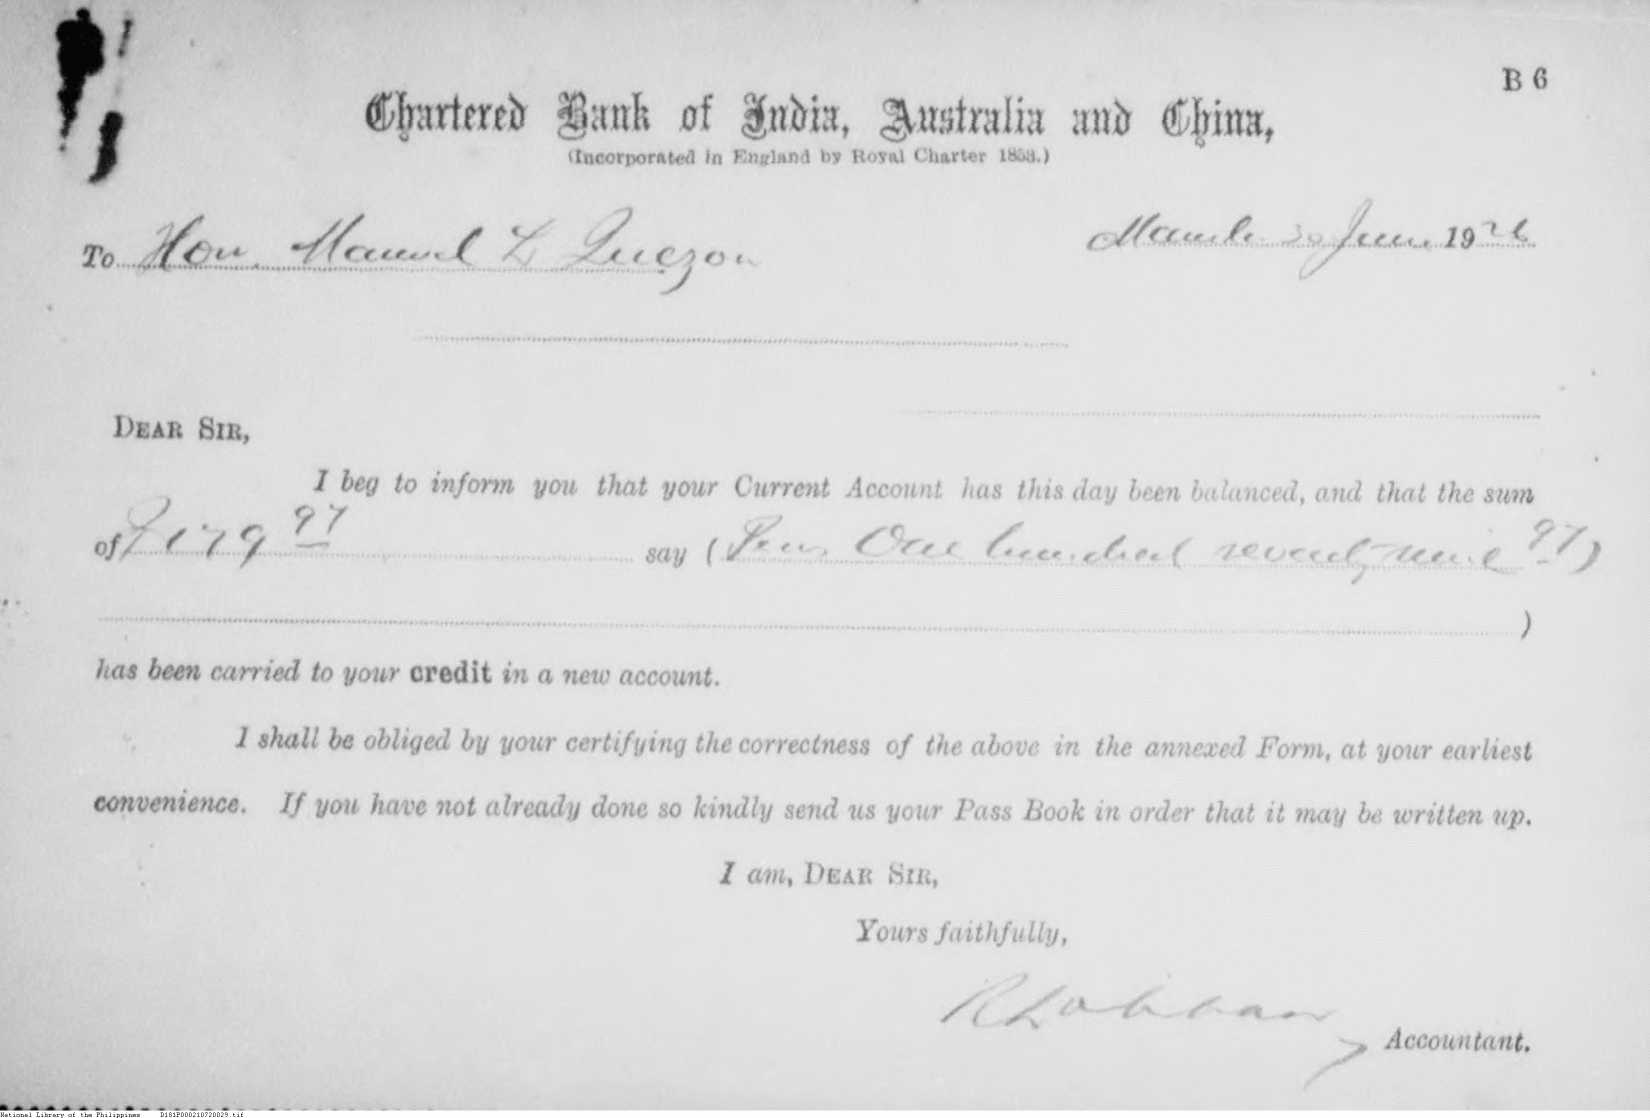 B 6
Chartered Bank of India, Australia and China,
(Incorporated in England by Royal Charter 1853.)
To Hon. Manuel L Quezon
Manila 30 June 1926
DEAR SIR,
I beg to inform you that your Current Account has this day been balanced, and that the sum
of P179 97 say (Pesos One hundred seventy-nine 97)
)
has been carried to your credit in a new account.
I shall be obliged by your certifying the correctness of the above in the annexed Form, at your earliest
convenience. If you have not already done so kindly send us your Pass Book in order that it may be written up.
I am, DEAR SIR,
Yours faithfully,
Accountant.
National Library of the Philippines D181P000210720029.tif